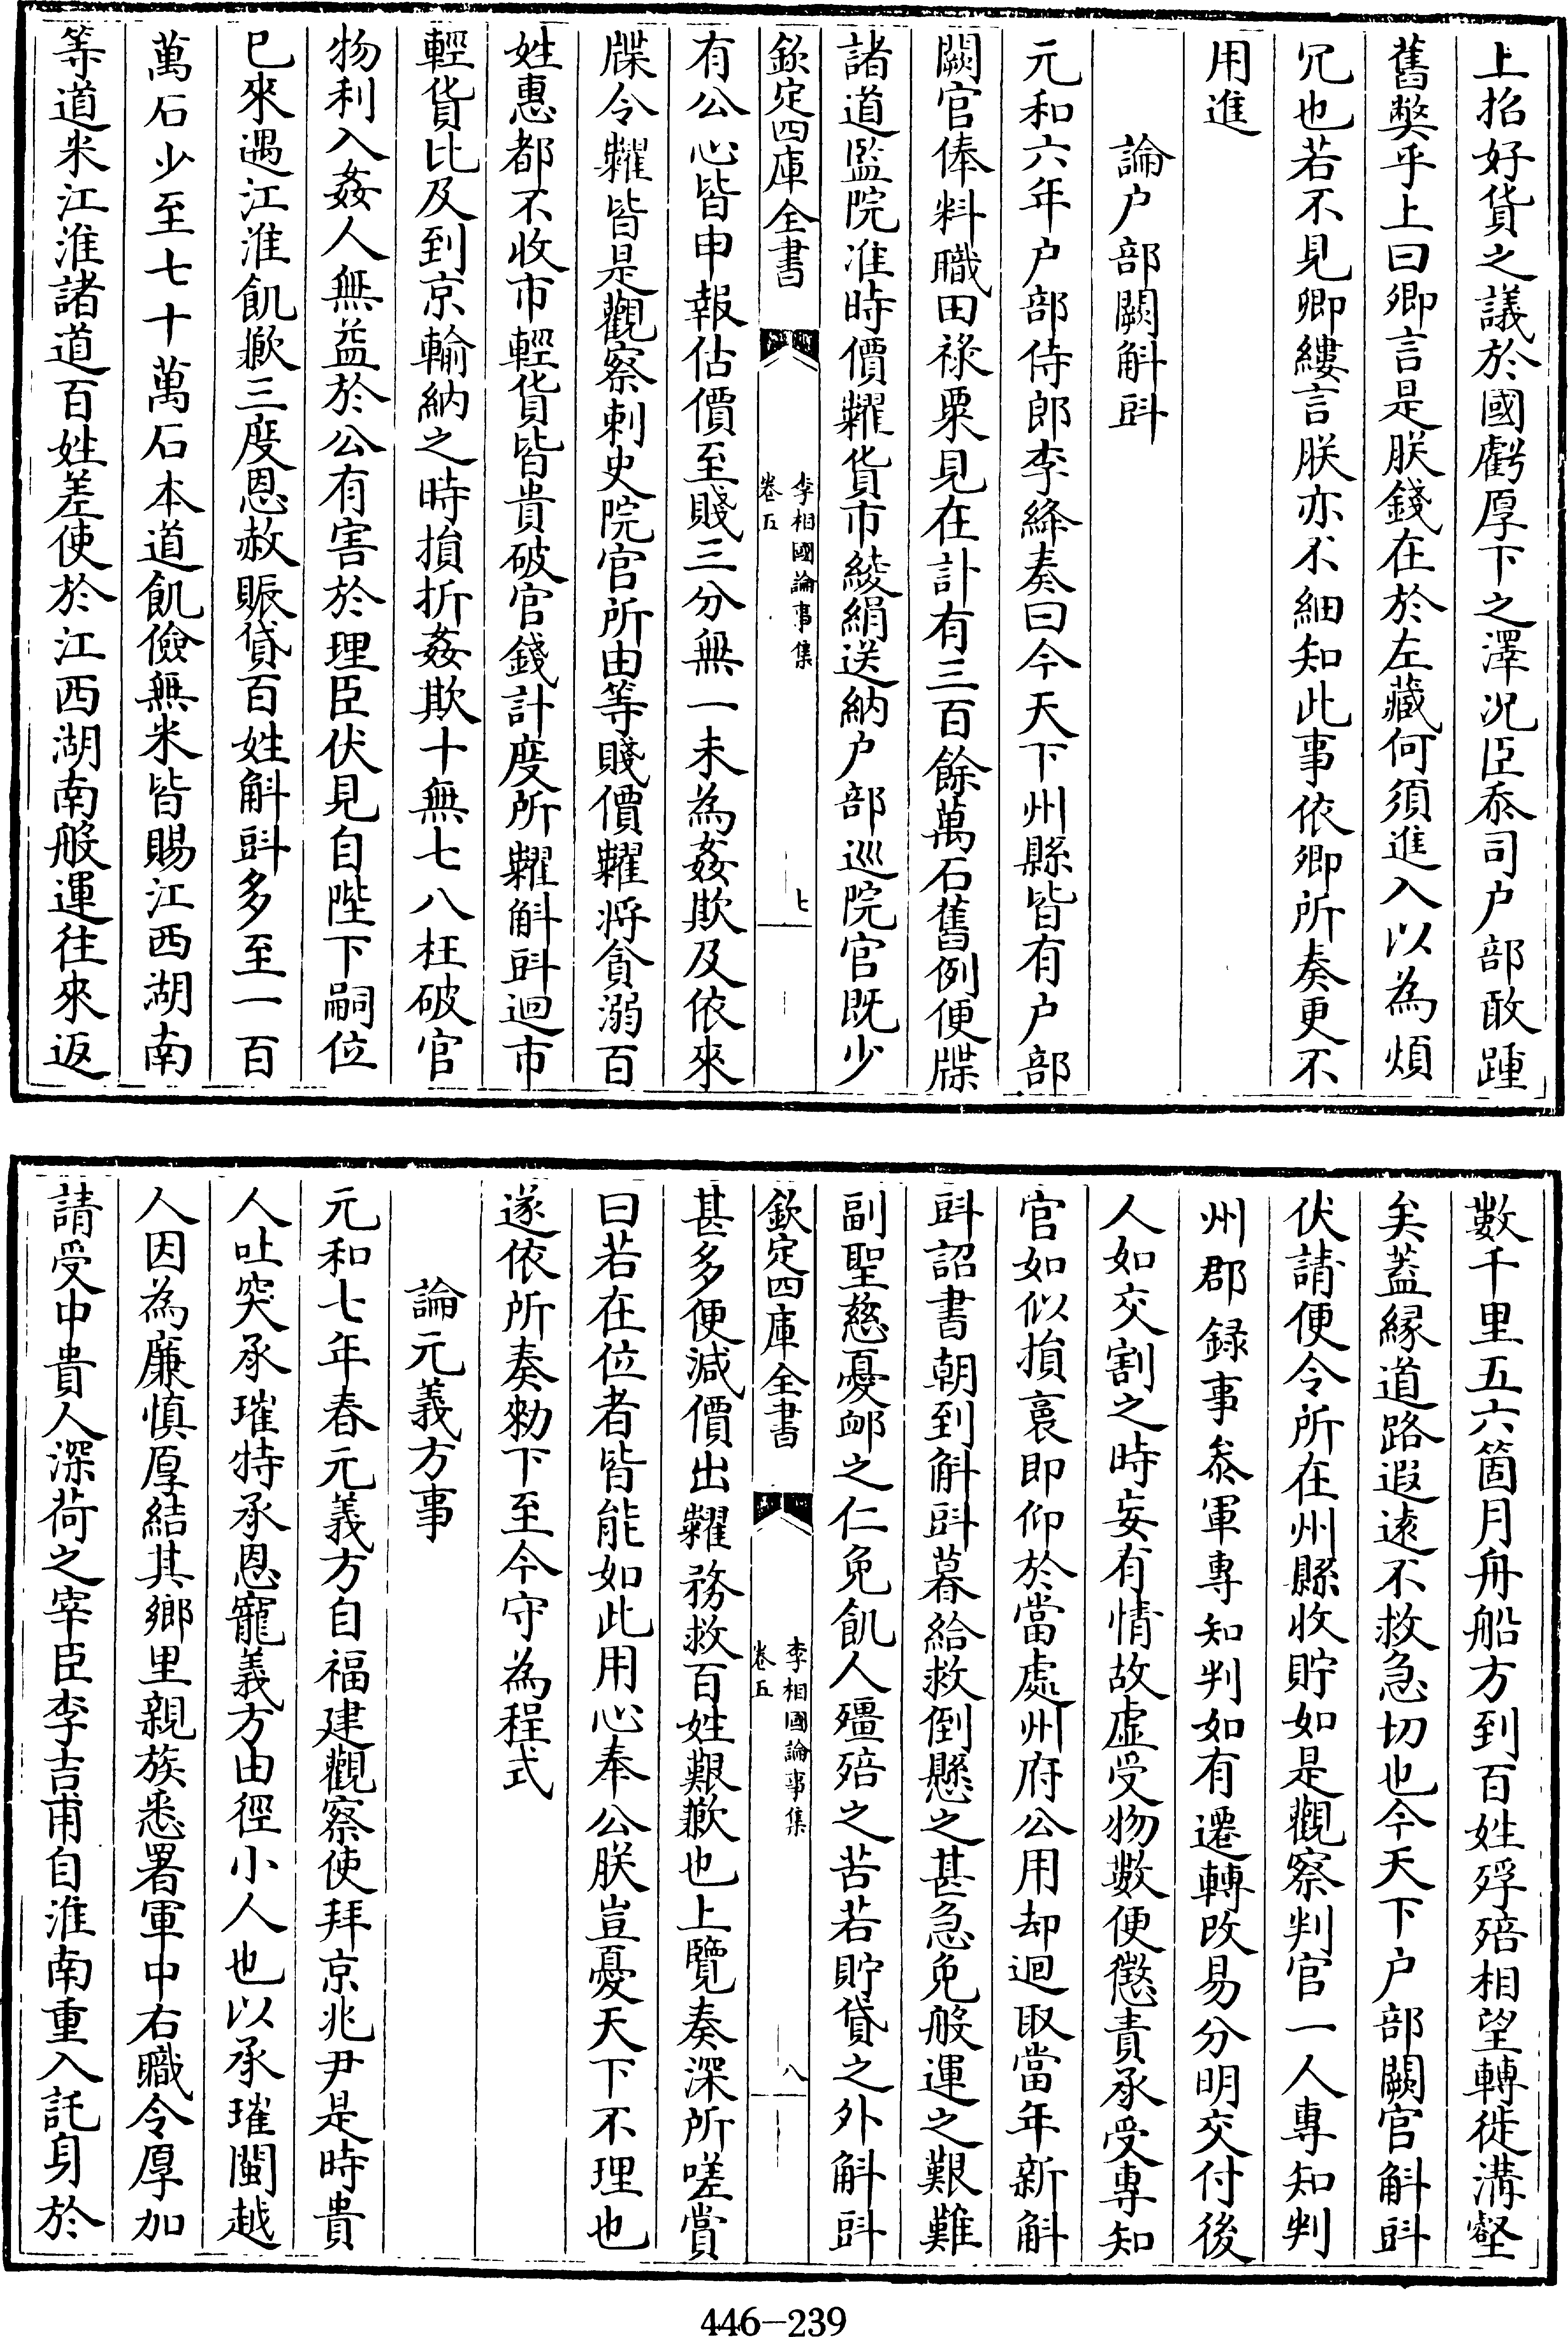 上招好貨之議於國虧厚下之澤况臣忝司户部敢踵
舊弊乎上曰卿言是朕錢在於左藏何須進入以為煩
冗也若不見卿縷言朕亦不細知此事依卿所奏更不
用進
論户部闕斛㪷
元和六年户部侍郎李絳奏曰今天下州縣皆有户部
闕官俸料職田禄粟見在計有三百餘萬石舊例便牒
諸道監院准時價糶貨市綾絹送納户部巡院官既少
欽定四庫全書
李相國論事集
卷五
七
有公心皆申報估價至賤三分無一未為姦欺及依來
牒令糶皆是觀察刺史院官所由等賤價糶將貪溺百
姓惠都不收市輕貨皆貴破官錢計度所糶斛㪷迴市
輕貨比及到京輸納之時損折姦欺十無七八枉破官
物利入姦人無益於公有害於理臣伏見自陛下嗣位
已來遇江淮飢歉三度恩赦賑貸百姓斛㪷多至一百
萬石少至七十萬石本道飢儉無米皆賜江西湖南
等道米江淮諸道百姓差使於江西湖南般運往來返
數千里五六箇月舟船方到百姓殍殕相望轉徙溝壑
矣蓋緣道路遐遠不救急切也今天下户部闕官斛㪷
伏請便令所在州縣收貯如是觀察判官一人專知判
州郡録事叅軍專知判如有遷轉改易分明交付後
人如交割之時妄有情故虛受物數便懲責承受專知
官如似損裛即仰於當處州府公用却迴取當年新斛
㪷詔書朝到斛㪷暮給救倒懸之甚急免般運之艱難
副聖慈憂邺之仁免飢人殭殕之苦若貯貸之外斛㪷
欽定四庫全書
李相國論事集
卷五
八
甚多便減價出糶務救百姓艱歉也上覽奏深所嗟賞
曰若在位者皆能如此用心奉公朕豈憂天下不理也
遂依所奏勑下至今守為程式
論元義方事
元和七年春元義方自福建觀察使拜京兆尹是時貴
人吐突承璀特承恩寵義方由徑小人也以承璀閩越
人因為廉慎厚結其鄉里親族悉署軍中右職令厚加
請受中貴人深荷之宰臣李吉甫自淮南重入託身於
446-239